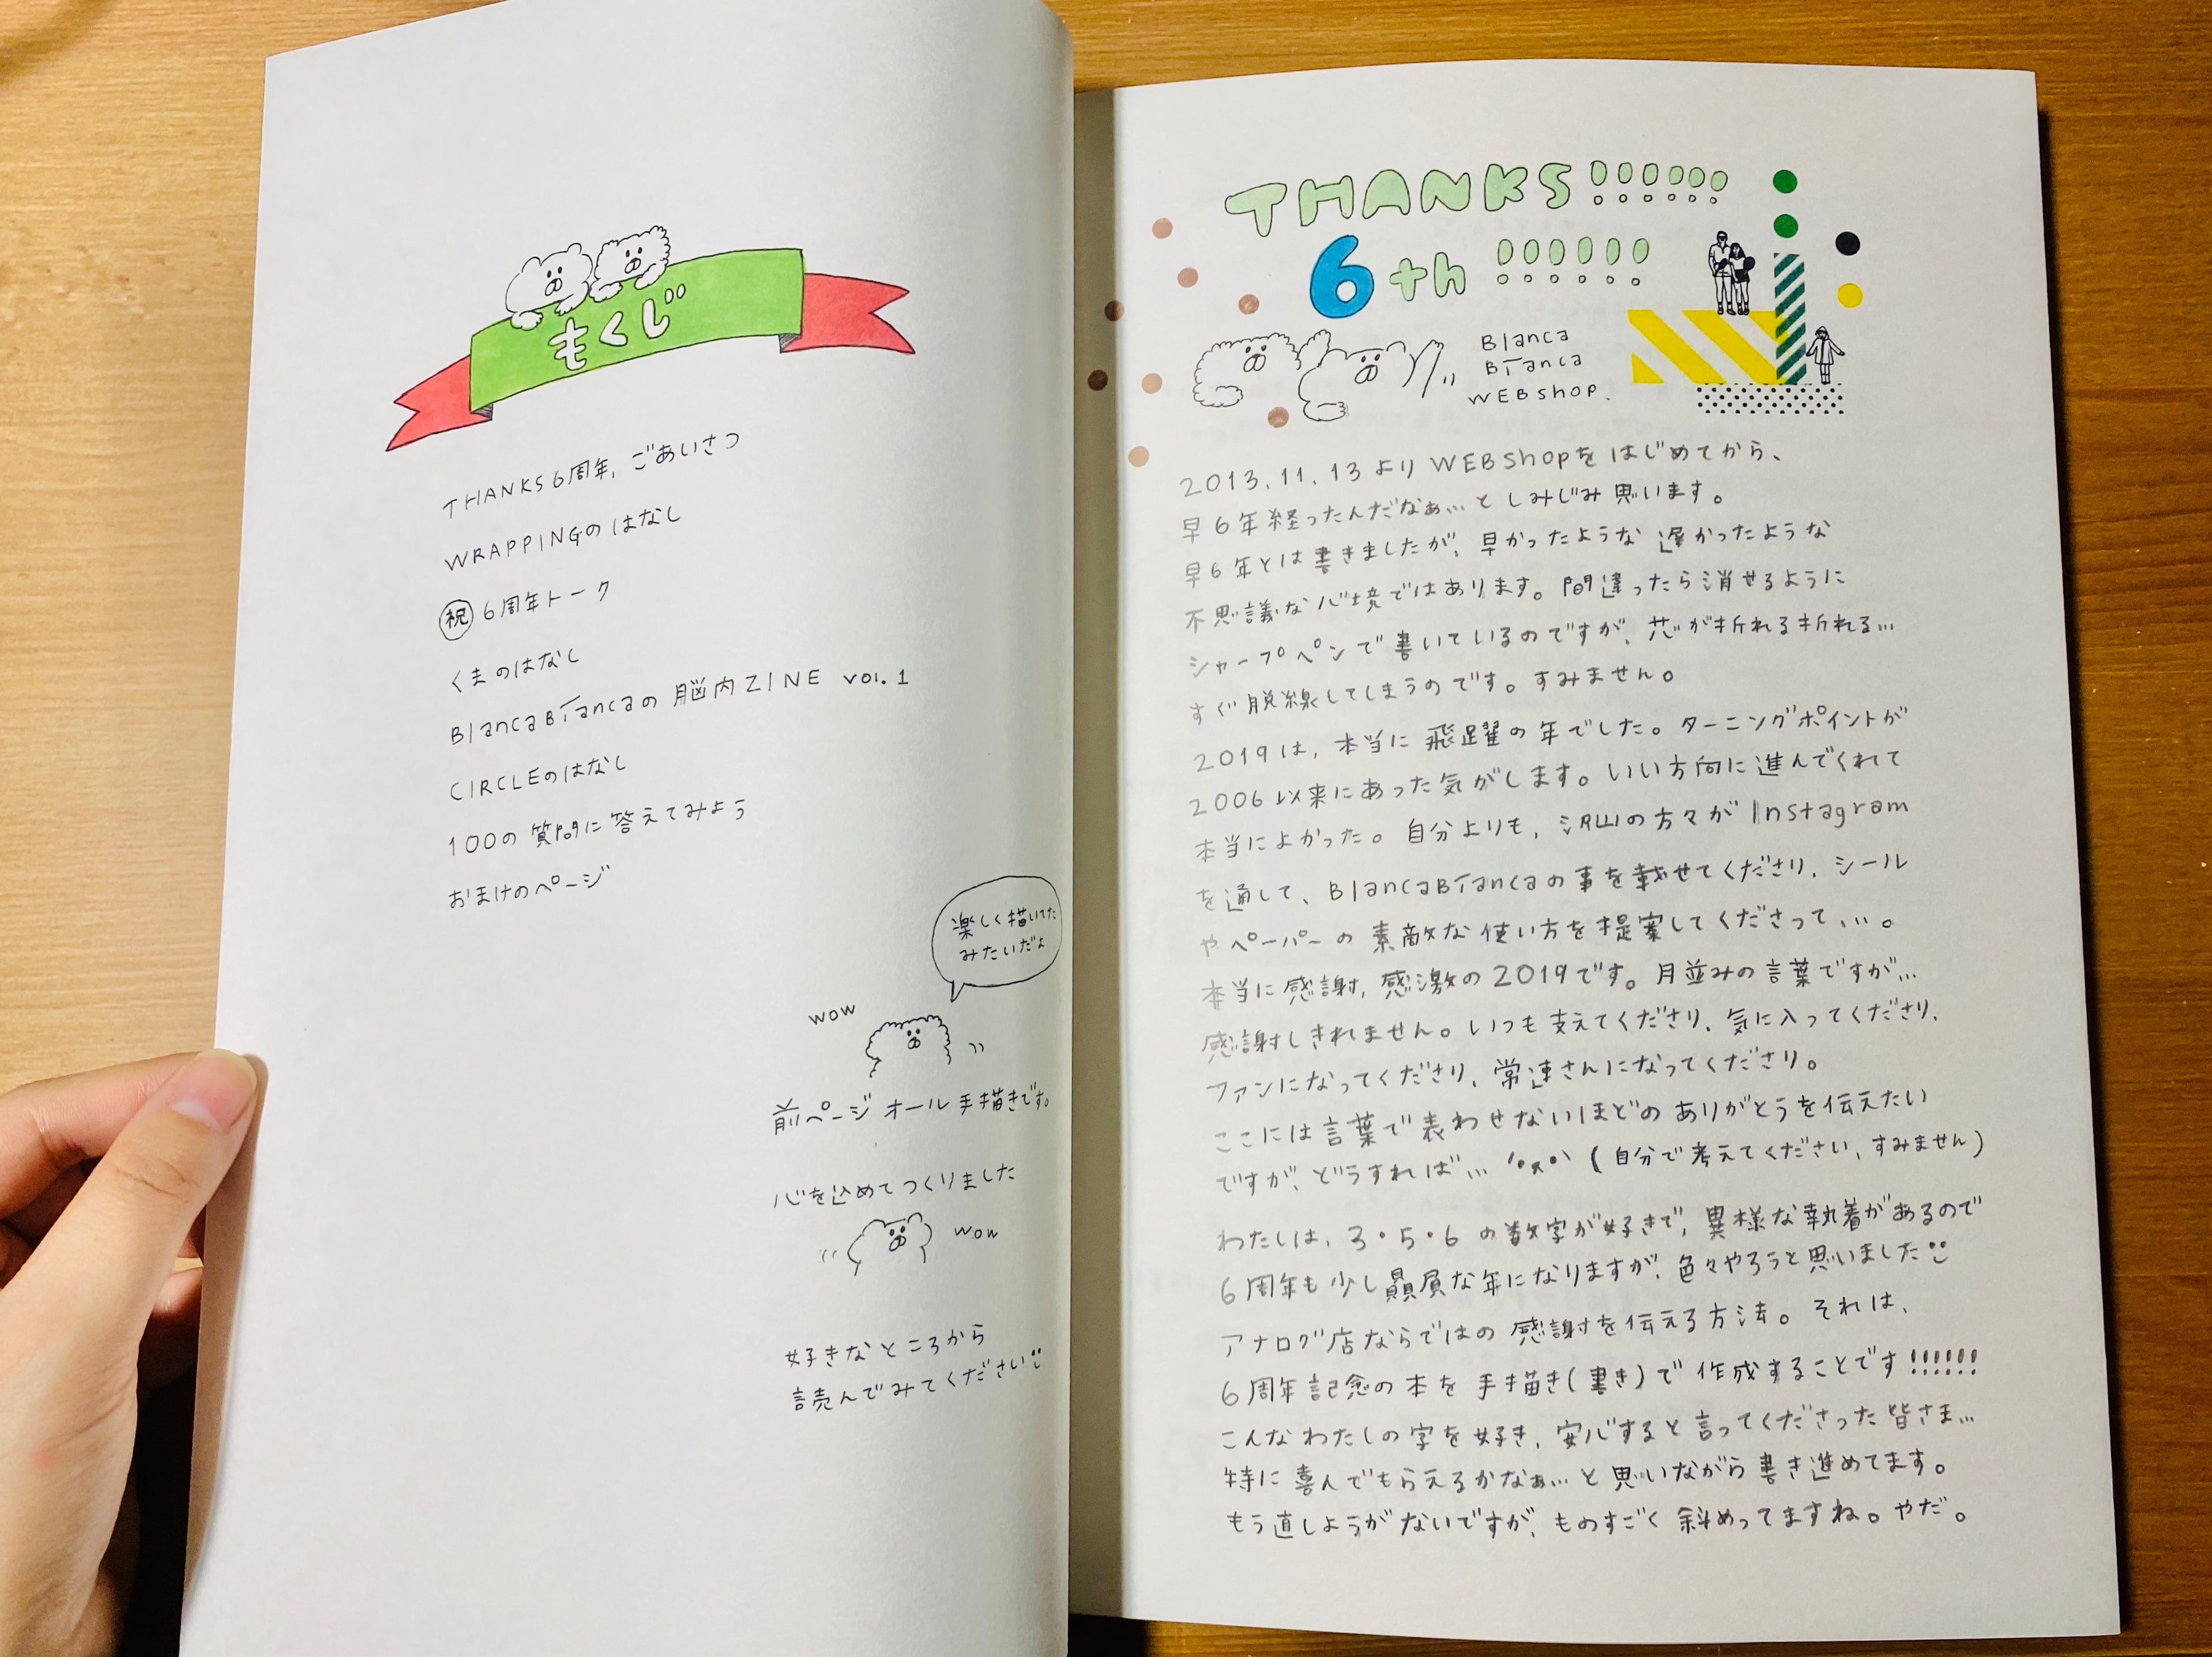 もくじ
THANKS6周年,ごあいさつ
WRAPPINGのはなし
祝 6周年トーク
くまのはなし
BlancaBTancaの脳内ZINE vol.1
CIRCLEのはなし
100の質問に答えてみよう
おまけのページ
楽しく描いてた
みたいだよ
wow
前ページ オール手描きです。
心を込めてつくりました
wow
好きなところから
読んでみてください
THANKS!!!!!!
6th !!!!!!
Blanca
BTanca
WEBshop.
2013.11.13よりWEBshopをはじめてから、
早6年経ったんだなぁ…としみじみ思います。
早6年とは書きましたが、早かったような遅かったような
不思議な心境ではあります。間違ったら消せるように
シャープペンで書いているのですが、芯が折れる折れる…
すぐ脱線してしまうのです。すみません。
2019は,本当に飛躍の年でした。ターニングポイントが
2006以来にあった気がします。いい方向に進んでくれて
本当によかった。自分よりも,沢山の方々がInstagram
を通して、BlancaBTancaの事を載せてくださり、シール
やペーパーの素敵な使い方を提案してくださって、…。
本当に感謝,感激の2019です。月並みの言葉ですが…
感謝しきれません。いつも支えてくださり、気に入ってくださり、
ファンになってくださり、常連さんになってくださり。
ここには言葉で表わせないほどのありがとうを伝えたい
ですが、どうすれば… (自分で考えてください、すみません)
わたしは、3・5・6の数字が好きで,異様な執着があるので
6周年も少し贔屓な年になりますが、色々やろうと思いました
アナログ店ならではの感謝を伝える方法。それは、
6周年記念の本を手描き(書き)で作成することです!!!!!!
こんなわたしの字を好き、安心すると言ってくださった皆さま…
特に喜んでもらえるかなぁ…と思いながら書き進めてます。
もう直しようがないですが、ものすごく斜めってますね。やだ。